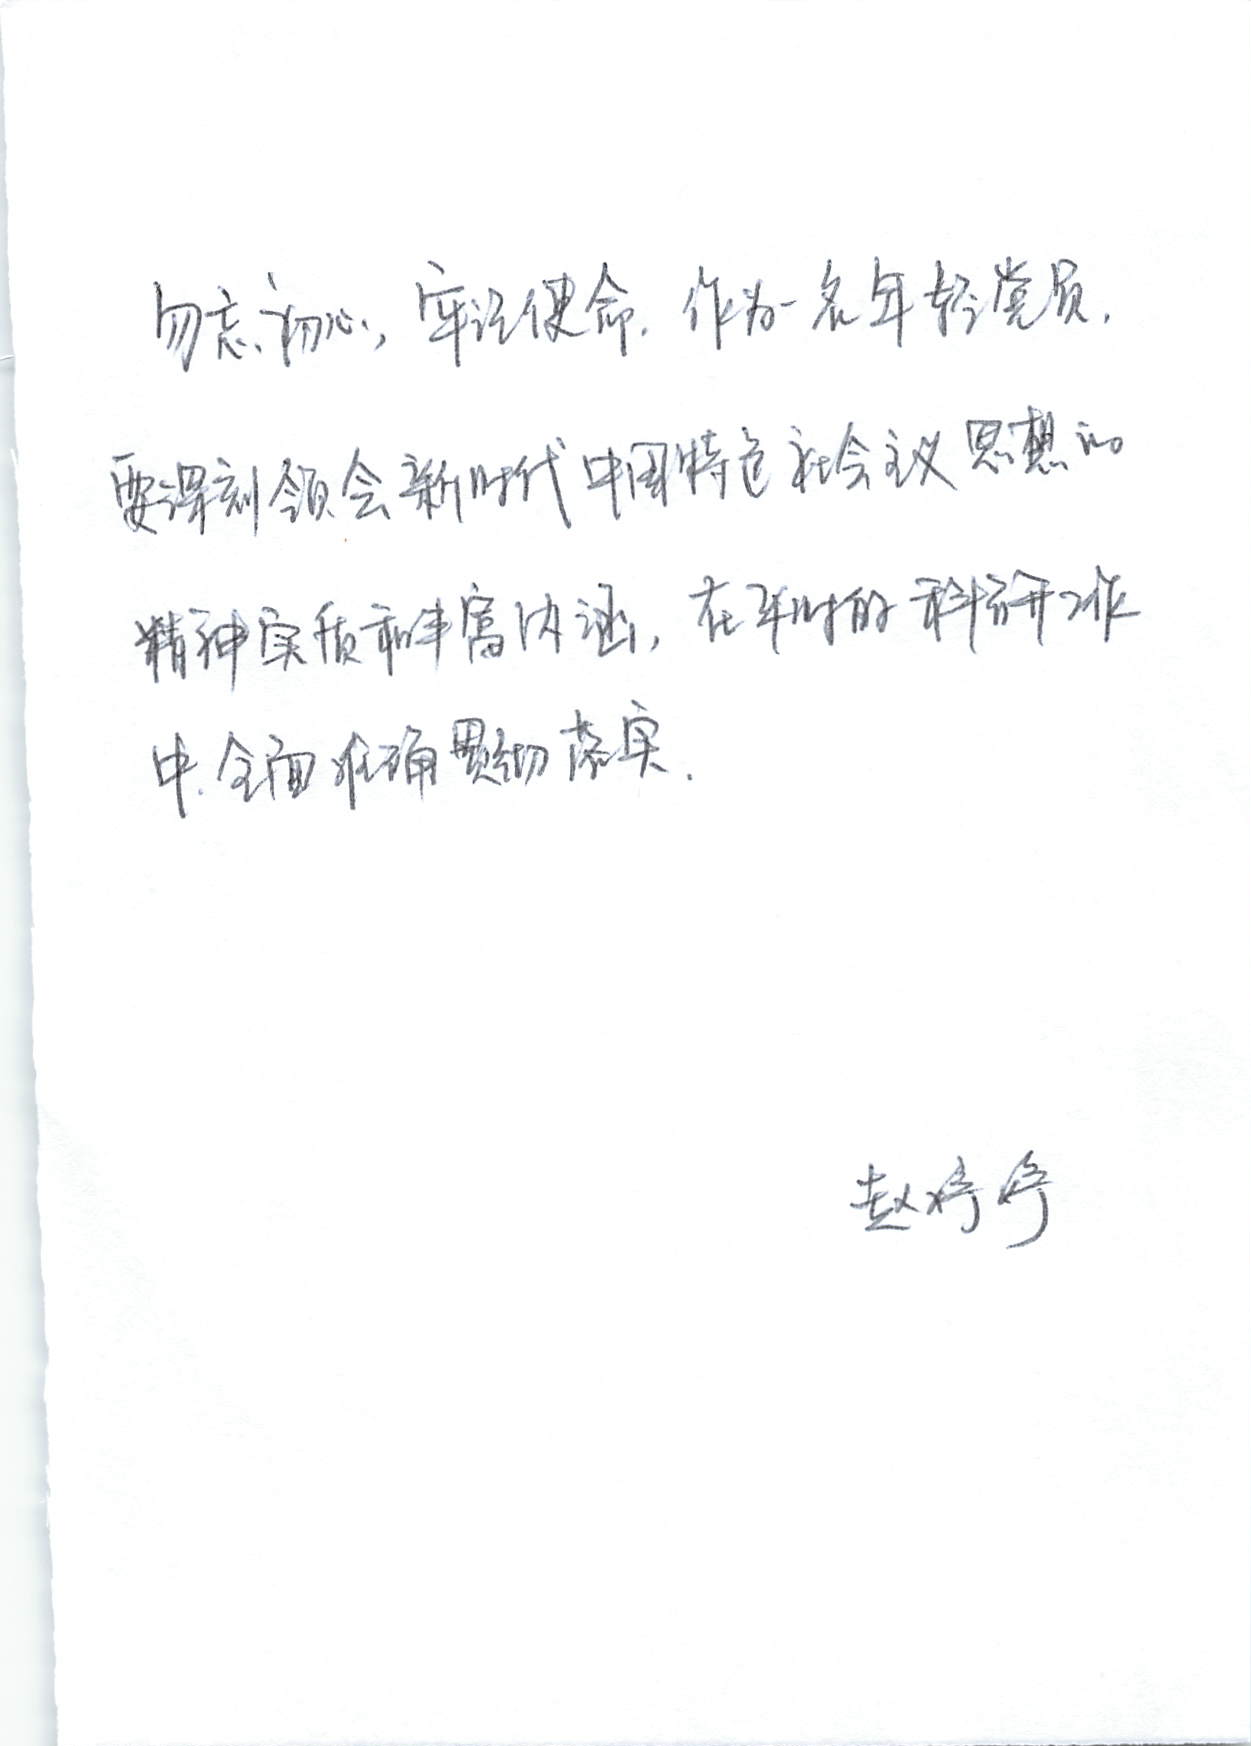 勿忘初心，牢记使命．作为一名年轻党员．
要深刻领会新时代中国特色社会主义思想的
精神实质和丰富内涵，在平时的科研工作
中．全面准确贯彻落实．
赵婷婷